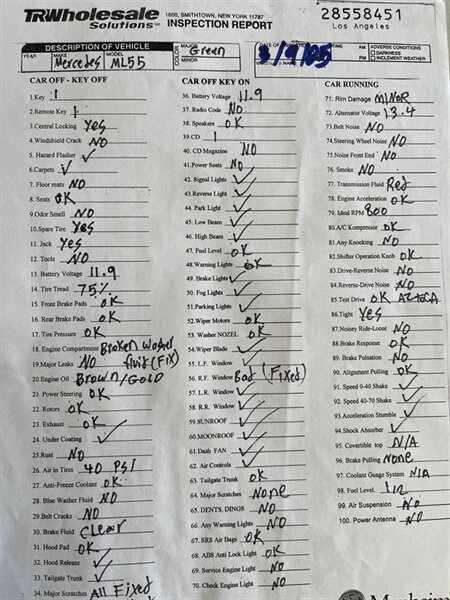 TRWholesale Solutions SM
1600, SMITHTOWN, NEW YORK 11787
INSPECTION REPORT
28558451
Los Angeles
DESCRIPTION OF VEHICLE
YEAR MAKE Mercedes MODEL ML55
COLOR MAJOR Green
MINOR
TIME AM PM
ADVERSE CONDITIONS
DARKNESS
INCLEMENT WEATHER
CAR OFF - KEY OFF
1.Key 1
2.Remote Key 1
3.Central Locking Yes
4.Windshield Crack NO
5. Hazard Flasher ✓
6.Carpets ✓
7. Floor mats NO
8. Seats OK
9.Odor Smell NO
10.Spare Tire Yes
11. Jack Yes
12. Tools NO
13. Battery Voltage 11.9
14. Tire Tread 75%
15. Front Brake Pads OK
16. Rear Brake Pads OK
17. Tire Pressure OK
18. Engine Compartment Broken washer
fluid (FIX)
19. Major Leaks NO
20. Engine Oil Brown/GOLD
21. Power Steering OK
22. Rotors OK
23. Exhaust OK
24. Under Coating ✓
25. Rust NO
26. Air in Tires 40 PSI
27. Anti-Freeze Coolant OK
28. Blue Washer Fluid NO
29. Belt Cracks NO
30. Brake Fluid Clear
31. Hood Pad OK
32. Hood Release ✓
33. Tailgate Trunk ✓
34. Major Scratches All Fixed
CAR OFF KEY ON
36. Battery Voltage 11.9
37. Radio Code NO
38. Speakers OK
39. CD 1
40. CD Magazine NO
41. Power Seats NO
42. Signal Lights ✓
43. Reverse Light ✓
44. Park Light ✓
45. Low Beam ✓
46. High Beam ✓
47. Fuel Level OK
48. Warning Lights OK
49. Brake Lights ✓
50. Fog Lights ✓
51. Parking Lights ✓
52. Wiper Motors OK
53. Washer NOZEL OK
54. Wiper Blade ✓
55. L.F. Window ✓
56. R.F. Window Bad (Fixed)
57. L.R. Window ✓
58. R.R. Window ✓
59. SUNROOF ✓
60. MOONROOF ✓
61. Dash FAN ✓
62. Air Controls ✓
63. Tailgate Trunk OK
64. Major Scratches None
65. DENTS, DINGS NO
66. Any Warning Lights NO
67. SRS Air Bags OK
68. ABS Anti Lock Light OK
69. Service Engine Light NO
70. Check Engine Light NO
CAR RUNNING
71. Rim Damage MINOR
72. Alternator Voltage 13.4
73. Belt Noise NO
74. Steering Wheel Noise NO
75. Noise Front End NO
76. Smoke NO
77. Transmission Fluid Red
78. Engine Acceleration OK
79. Ideal RPM 800
80. A/C Kompressor OK
81. Any Knocking NO
82. Shifter Operation Knob OK
83. Drive-Reverse Noise NO
84. Reverse-Drive Noise NO
85. Test Drive OK AZTECA
86. Tight Yes
87. Noisey Ride-Loose NO
88. Brake Response OK
89. Brake Pulsation NO
90. Alignment Pulling OK
91. Speed 0-40 Shake ✓
92. Speed 40-70 Shake ✓
93. Acceleration Stumble ✓
94. Shock Absorber ✓
95. Covertible top N/A
96. Brake Pulling None
97. Coolant Guage System N/A
98. Fuel Level 1/2
99. Air Suspension NO
100. Power Antenna NO